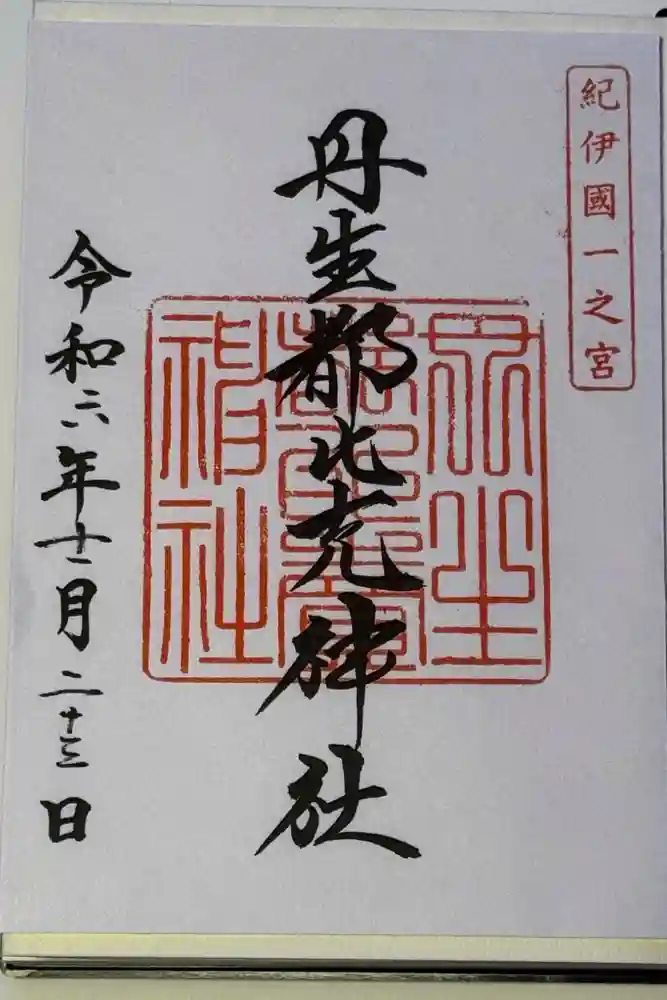 紀伊國一之宮
丹生都比売神社
丹生都比賣神社
令和六年十一月二十三日